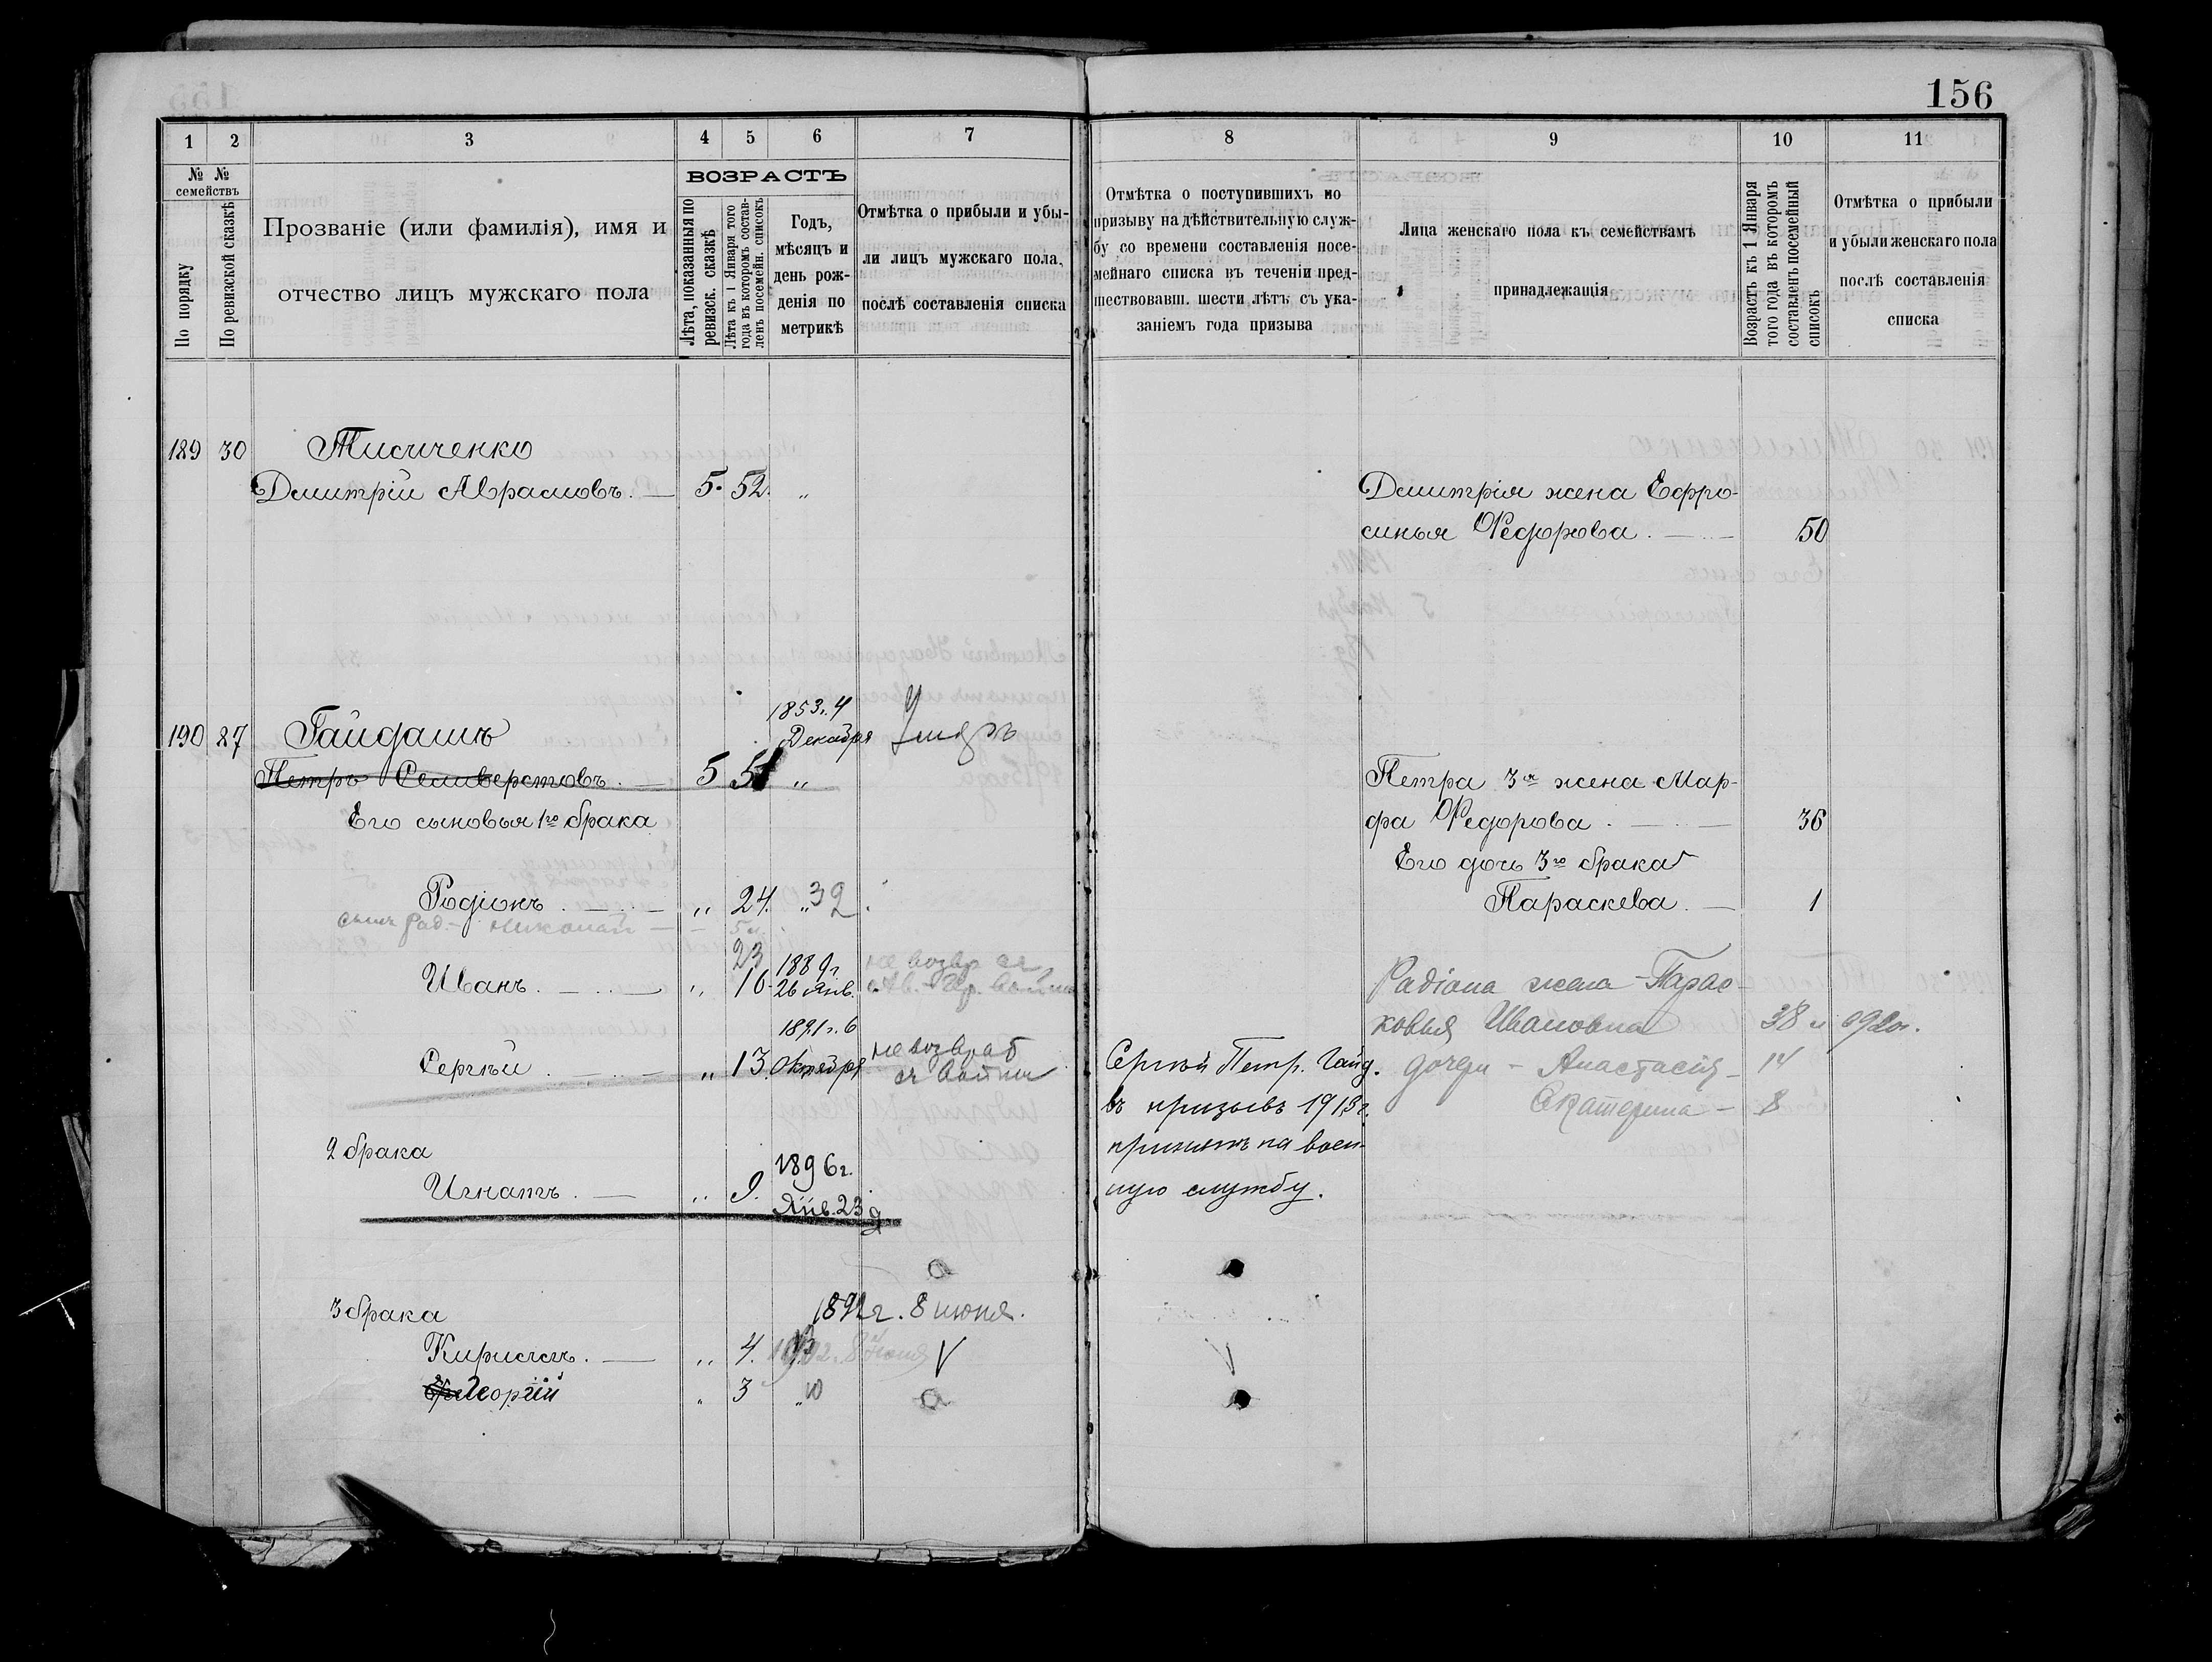 156
1 2 3 4 5 6 7
№ № семействъ
По порядку
По ревизской сказкѣ
Прозваніе (или фамилія), имя и
отчество лицъ мужскаго пола
ВОЗРАСТЪ
Лѣта, показанныя по
ревизск. сказкѣ
Лѣта къ 1 Января того
года въ которомъ состав-
ленъ посемейн. списокъ
Годъ,
мѣсяцъ и
день рож-
денія по
метрикѣ
Отмѣтка о прибыли и убы-
ли лицъ мужскаго пола,
послѣ составленія списка
8 9 10 11
Отмѣтка о поступившихъ по
призыву на дѣйствительную служ-
бу со времени составленія посе-
мейнаго списка въ теченіи пред-
шествовавш. шести лѣтъ съ ука-
заніемъ года призыва
Лица женскаго пола къ семействамъ
принадлежащія
Возрастъ къ 1 Января
того года въ которомъ
составленъ посемейный
списокъ
Отмѣтка о прибыли
и убыли женскаго пола
послѣ составленія
списка
189 30
Дмитрій Аврамовъ. 5. 52. „
Дмитрія жена Ефро-
синья Федорова. 50
1853 г. 4
190 27 Гайдашъ Декабря Умеръ
Петръ Селиверстовъ. 5 51 „
Петра 3я жена Мар-
фа Федорова. 36
Его сыновья 1го брака
Его дочь 3го брака
Параскева. 1
Родіонъ. „ 24. „ 32
сынъ Рад. - Николай - - 5 м.
23 1889 г. не возвр
Иванъ. „ 16. 26 Янв.
Радіона жена - Парас-
ковья Ивановна 38
1891 г. 6
Сергѣй. „ 13. Октября не возврат
съ войны
дочери - Анастасія - 14
Екатерина - 8
Сергѣй Петр. Гайд.
въ призывъ 1913 г.
принятъ на воен-
ную службу.
2 брака 1896 г.
Игнатъ. „ 9. Янв. 23 д
3 брака
8 июня.
Кириллъ. „ 4. V V
Георгій „ 3 „10